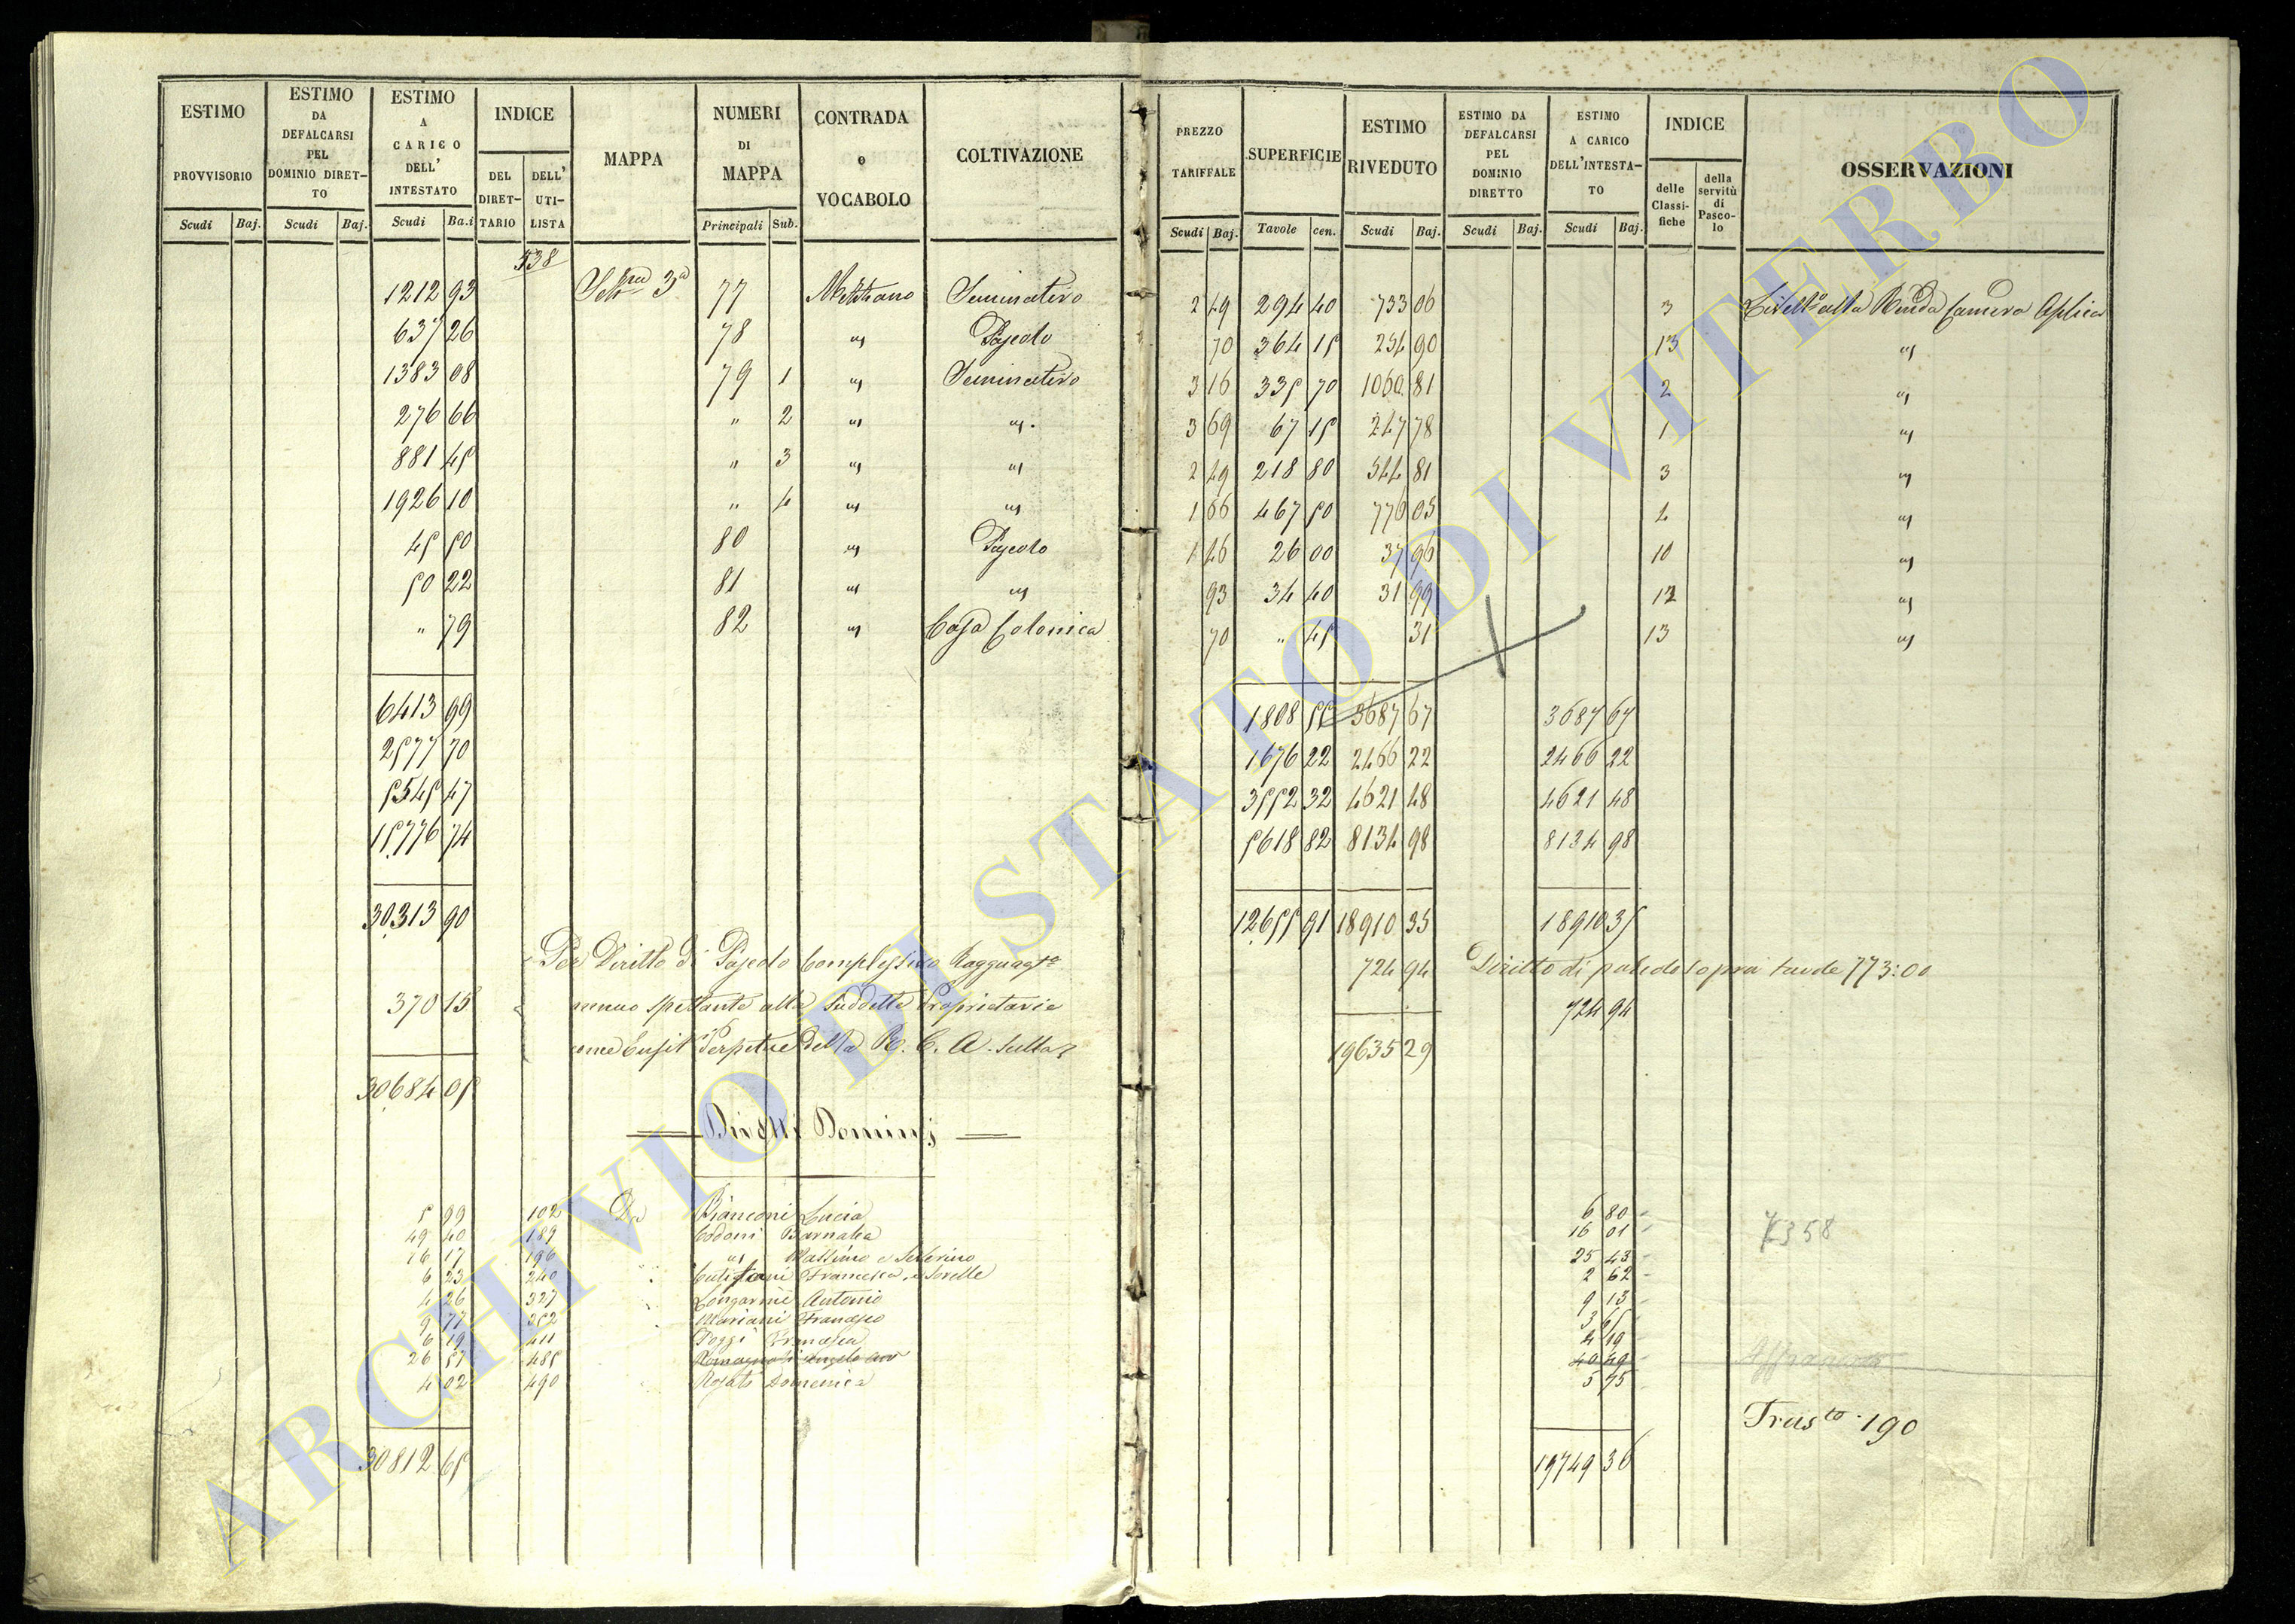 ESTIMO PROVVISORIO Scudi Baj.
ESTIMO DA DEFALCARSI PEL DOMINIO DIRET-TO Scudi Baj.
ESTIMO A CARICO DELL' INTESTATO Scudi Ba.i
INDICE DEL DIRET-TARIO DELL' UTI-LISTA
MAPPA
NUMERI DI MAPPA Principali Sub.
CONTRADA e VOCABOLO
COLTIVAZIONE
PREZZO TARIFFALE Scudi Baj.
SUPERFICIE Tavole cen.
ESTIMO RIVEDUTO Scudi Baj.
ESTIMO DA DEFALCARSI PEL DOMINIO DIRETTO Scudi Baj.
ESTIMO A CARICO DELL'INTESTA-TO Scudi Baj.
INDICE delle Classi-fiche della servitù di Pasco-lo
OSSERVAZIONI
538
1212 93 3ª 77 Seminativo 2 49 294 40 733 06 3 alla Camera
637 26 78 " Pascolo 70 364 15 254 90 13 "
1383 08 79 1 " Seminativo 3 16 335 70 1060 81 2 "
276 66 " 2 " " 3 69 67 15 247 78 1 "
881 45 " 3 " " 2 49 218 80 544 81 3 "
1926 10 " 4 " " 1 66 467 50 776 05 4 "
45 50 80 " Pascolo 1 46 26 00 37 96 10 "
50 22 81 " " 93 34 40 31 99 12 "
" 79 82 " Casa Colonica 70 " 45 31 13 "
6413 99 1808 55 3687 67 3687 67
2577 70 1676 22 2466 22 2466 22
5545 47 3552 32 4621 48 4621 48
15776 74 5618 82 8134 98 8134 98
30313 90 12655 91 18910 35 18910 35
Per Diritto di Pascolo Complessivo 724 94 Diritto di pascolo sopra tavole 773:00
370 15 spettante alla suddetta Proprietaria 724 94
come Perpetue della R. C. A. sulla 19635 29
30684 05
Diretti Dominj
5 99 102 Da Bianconi Lucia 6 80
49 40 189 Codoni Barnaba 16 01 358
16 17 196 " Massimo e Severino 25 43
6 23 240 Francesca, e Sorelle 2 62
4 26 327 Longarini Antonio 9 13
9 77 352 Mariani Francesco 3 65
6 19 411 Poggi Francesca 4 19
26 57 485 Romagnoli Angelo 40 49 Affrancato
4 02 490 Rosati Domenica 5 75
Trasto 190
30812 65 19749 36
ARCHIVIO DI STATO DI VITERBO